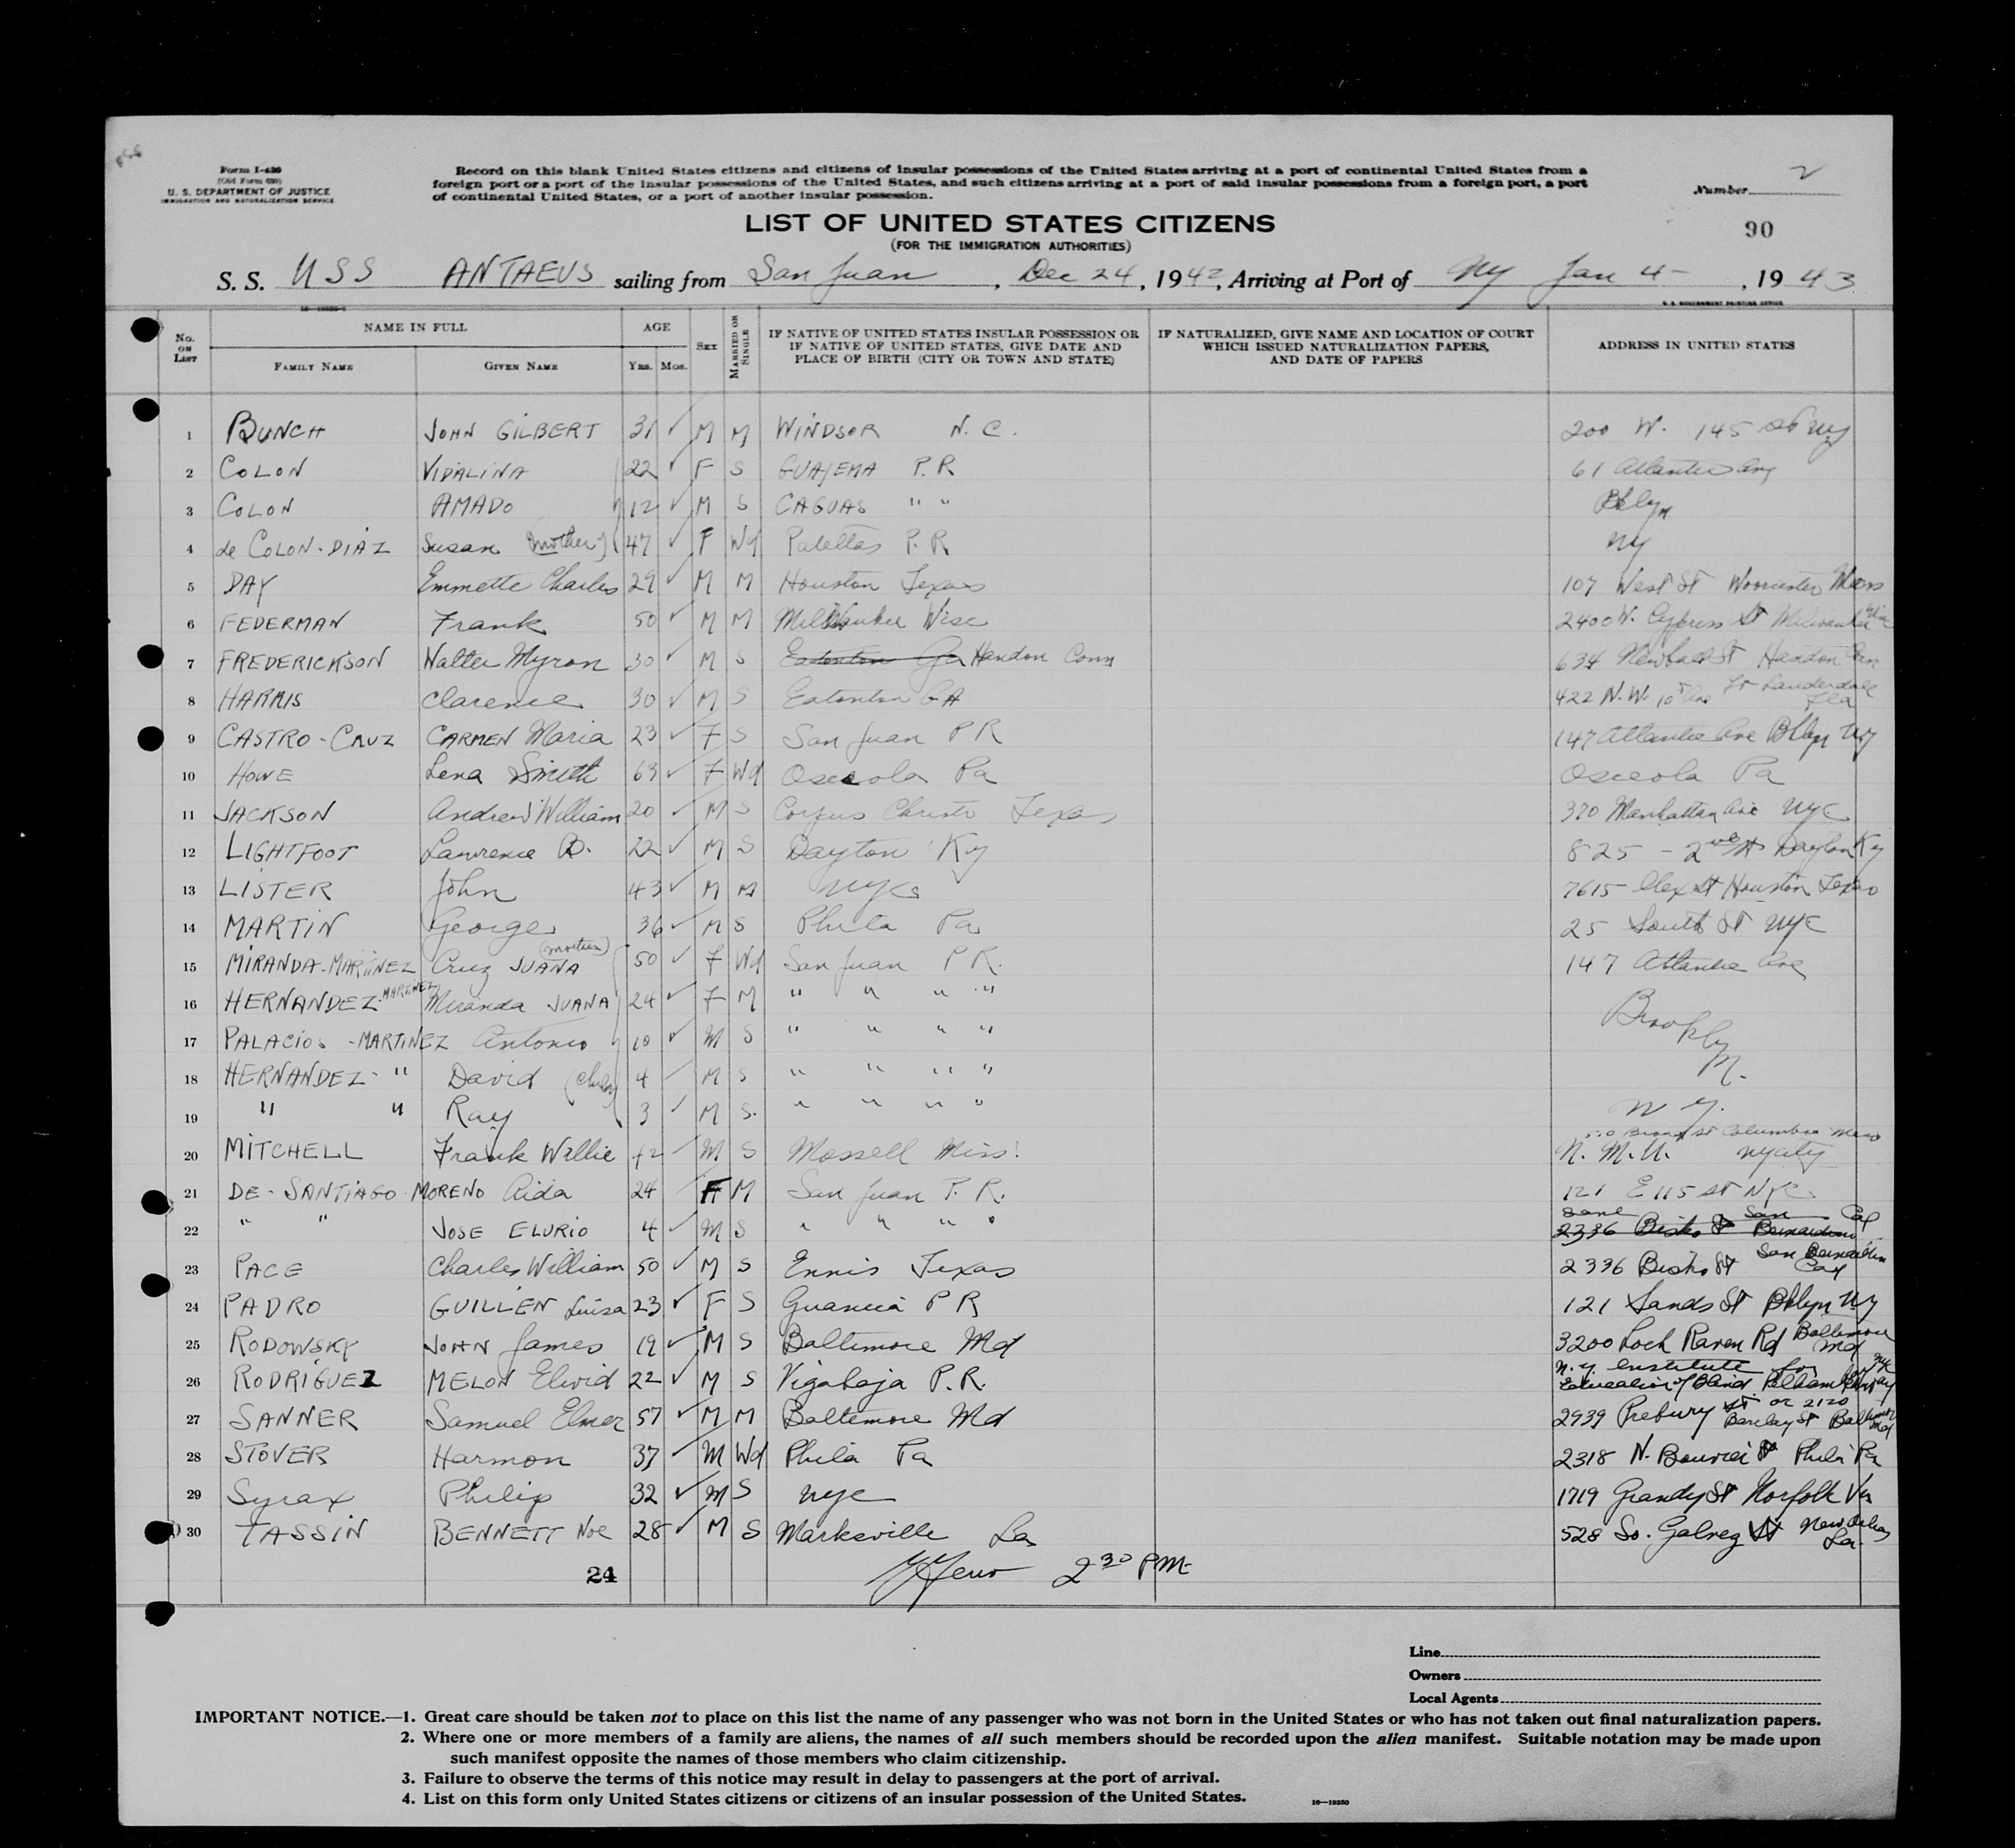 Form I-430
(Old Form 630)
U. S. DEPARTMENT OF JUSTICE
IMMIGRATION AND NATURALIZATION SERVICE
Record on this blank United States citizens and citizens of insular possessions of the United States arriving at a port of continental United States from a
foreign port or a port of the insular possessions of the United States, and such citizens arriving at a port of said insular possessions from a foreign port, a port
of continental United States, or a port of another insular possession.
Number 2
LIST OF UNITED STATES CITIZENS
90
(FOR THE IMMIGRATION AUTHORITIES)
S. S. USS ANTAEUS sailing from San Juan, Dec 24, 1942, Arriving at Port of Ny Jan 4- , 1943
U. S. GOVERNMENT PRINTING OFFICE
No. ON LIST NAME IN FULL AGE SEX MARRIED OR SINGLE IF NATIVE OF UNITED STATES INSULAR POSSESSION OR IF NATIVE OF UNITED STATES, GIVE DATE AND PLACE OF BIRTH (CITY OR TOWN AND STATE) IF NATURALIZED, GIVE NAME AND LOCATION OF COURT WHICH ISSUED NATURALIZATION PAPERS, AND DATE OF PAPERS ADDRESS IN UNITED STATES
FAMILY NAME GIVEN NAME YRS. MOS.
1 BUNCH JOHN GILBERT 31 ✓ M M WINDSOR N. C. 200 W. 145 St Ny
2 COLON VIDALINA 22 ✓ F S GUAJEMA P. R 61 Atlantic Ave
3 COLON AMADO 12 ✓ M S CAGUAS " " Bklyn
4 de COLON-DIAZ Susan (mother) 47 ✓ F Wd Patellas P. R Ny
5 DAY Emmette Charles 29 ✓ M M Houston Texas 107 West St Worcester Mass
6 FEDERMAN Frank 50 ✓ M M Milwaukee Wisc 2400 W. Cypress St Milwaukee Wis
7 FREDERICKSON Walter Myron 30 ✓ M S Eatonton Ga Hamdon Conn 634 St Hamdon Conn
8 HARRIS Clarence 30 ✓ M S Eatonton GA 422 N. W. 10th Ave Ft Lauderdale Fla
9 CASTRO-CRUZ CARMEN Maria 23 ✓ F S San Juan P R 147 Atlantic Ave Bklyn Ny
10 HOWE Lena Smith 63 ✓ F Wd Osceola Pa Osceola Pa
11 JACKSON Andrew William 20 ✓ M S Corpus Christi Texas 370 Manhattan Ave NYC
12 LIGHTFOOT Lawrence D. 22 ✓ M S Dayton Ky 825 - 2nd St Dayton Ky
13 LISTER John 43 ✓ M M NYC 7615 St Houston Texas
14 MARTIN George 36 ✓ M S Phila Pa 25 South St NYC
15 MIRANDA-MARTINEZ Cruz JUANA (mother) 50 ✓ F Wd San Juan P R. 147 Atlantic Ave
16 HERNANDEZ-MARTINEZ Miranda JUANA 24 ✓ F M " " " " Brooklyn
17 PALACIOS -MARTINEZ Antonio 10 ✓ M S " " " "
18 HERNANDEZ- " David 4 ✓ M S " " " "
19 " " Ray 3 ✓ M S. " " " " N. Y.
20 MITCHELL Frank Willie 42 ✓ M S Mossell Miss. Broad St Columbia Miss N. M. U. Ny City
21 DE-SANTIAGO-MORENO Aida 24 F M San Juan P. R. 121 E 115 St NYC
22 " " JOSE ELURIO 4 ✓ M S " " " " same 2336 San Bernardino Cal
23 PACE Charles William 50 ✓ M S Ennis Texas 2336 St San Bernardino Cal
24 PADRO GUILLEN Luisa 23 ✓ F S Guanica P R 121 Sands St Bklyn Ny
25 RODOWSKY JOHN James 19 ✓ M S Baltimore Md 3200 Loch Raven Rd Baltimore Md
26 RODRIGUEZ MELON Elvid 22 ✓ M S P. R. N. Y Institute for Education of Blind Pelham Parkway NYC
27 SANNER Samuel Elmer 57 ✓ M M Baltimore Md 2939 Presbury St or 2120 Barclay St Baltimore Md
28 STOVER Harmon 37 ✓ M Wd Phila Pa 2318 N. Bouvier St Phila Pa
29 Syrax Philip 32 ✓ M S NYC 1719 Grandy St Norfolk Va
30 TASSIN BENNETT Noe 28 ✓ M S Marksville La 528 So. Galvez St New Orleans La.
24
2 30 P.M.
Line
Owners
Local Agents
IMPORTANT NOTICE.—1. Great care should be taken not to place on this list the name of any passenger who was not born in the United States or who has not taken out final naturalization papers.
2. Where one or more members of a family are aliens, the names of all such members should be recorded upon the alien manifest. Suitable notation may be made upon
such manifest opposite the names of those members who claim citizenship.
3. Failure to observe the terms of this notice may result in delay to passengers at the port of arrival.
4. List on this form only United States citizens or citizens of an insular possession of the United States.
16—19350